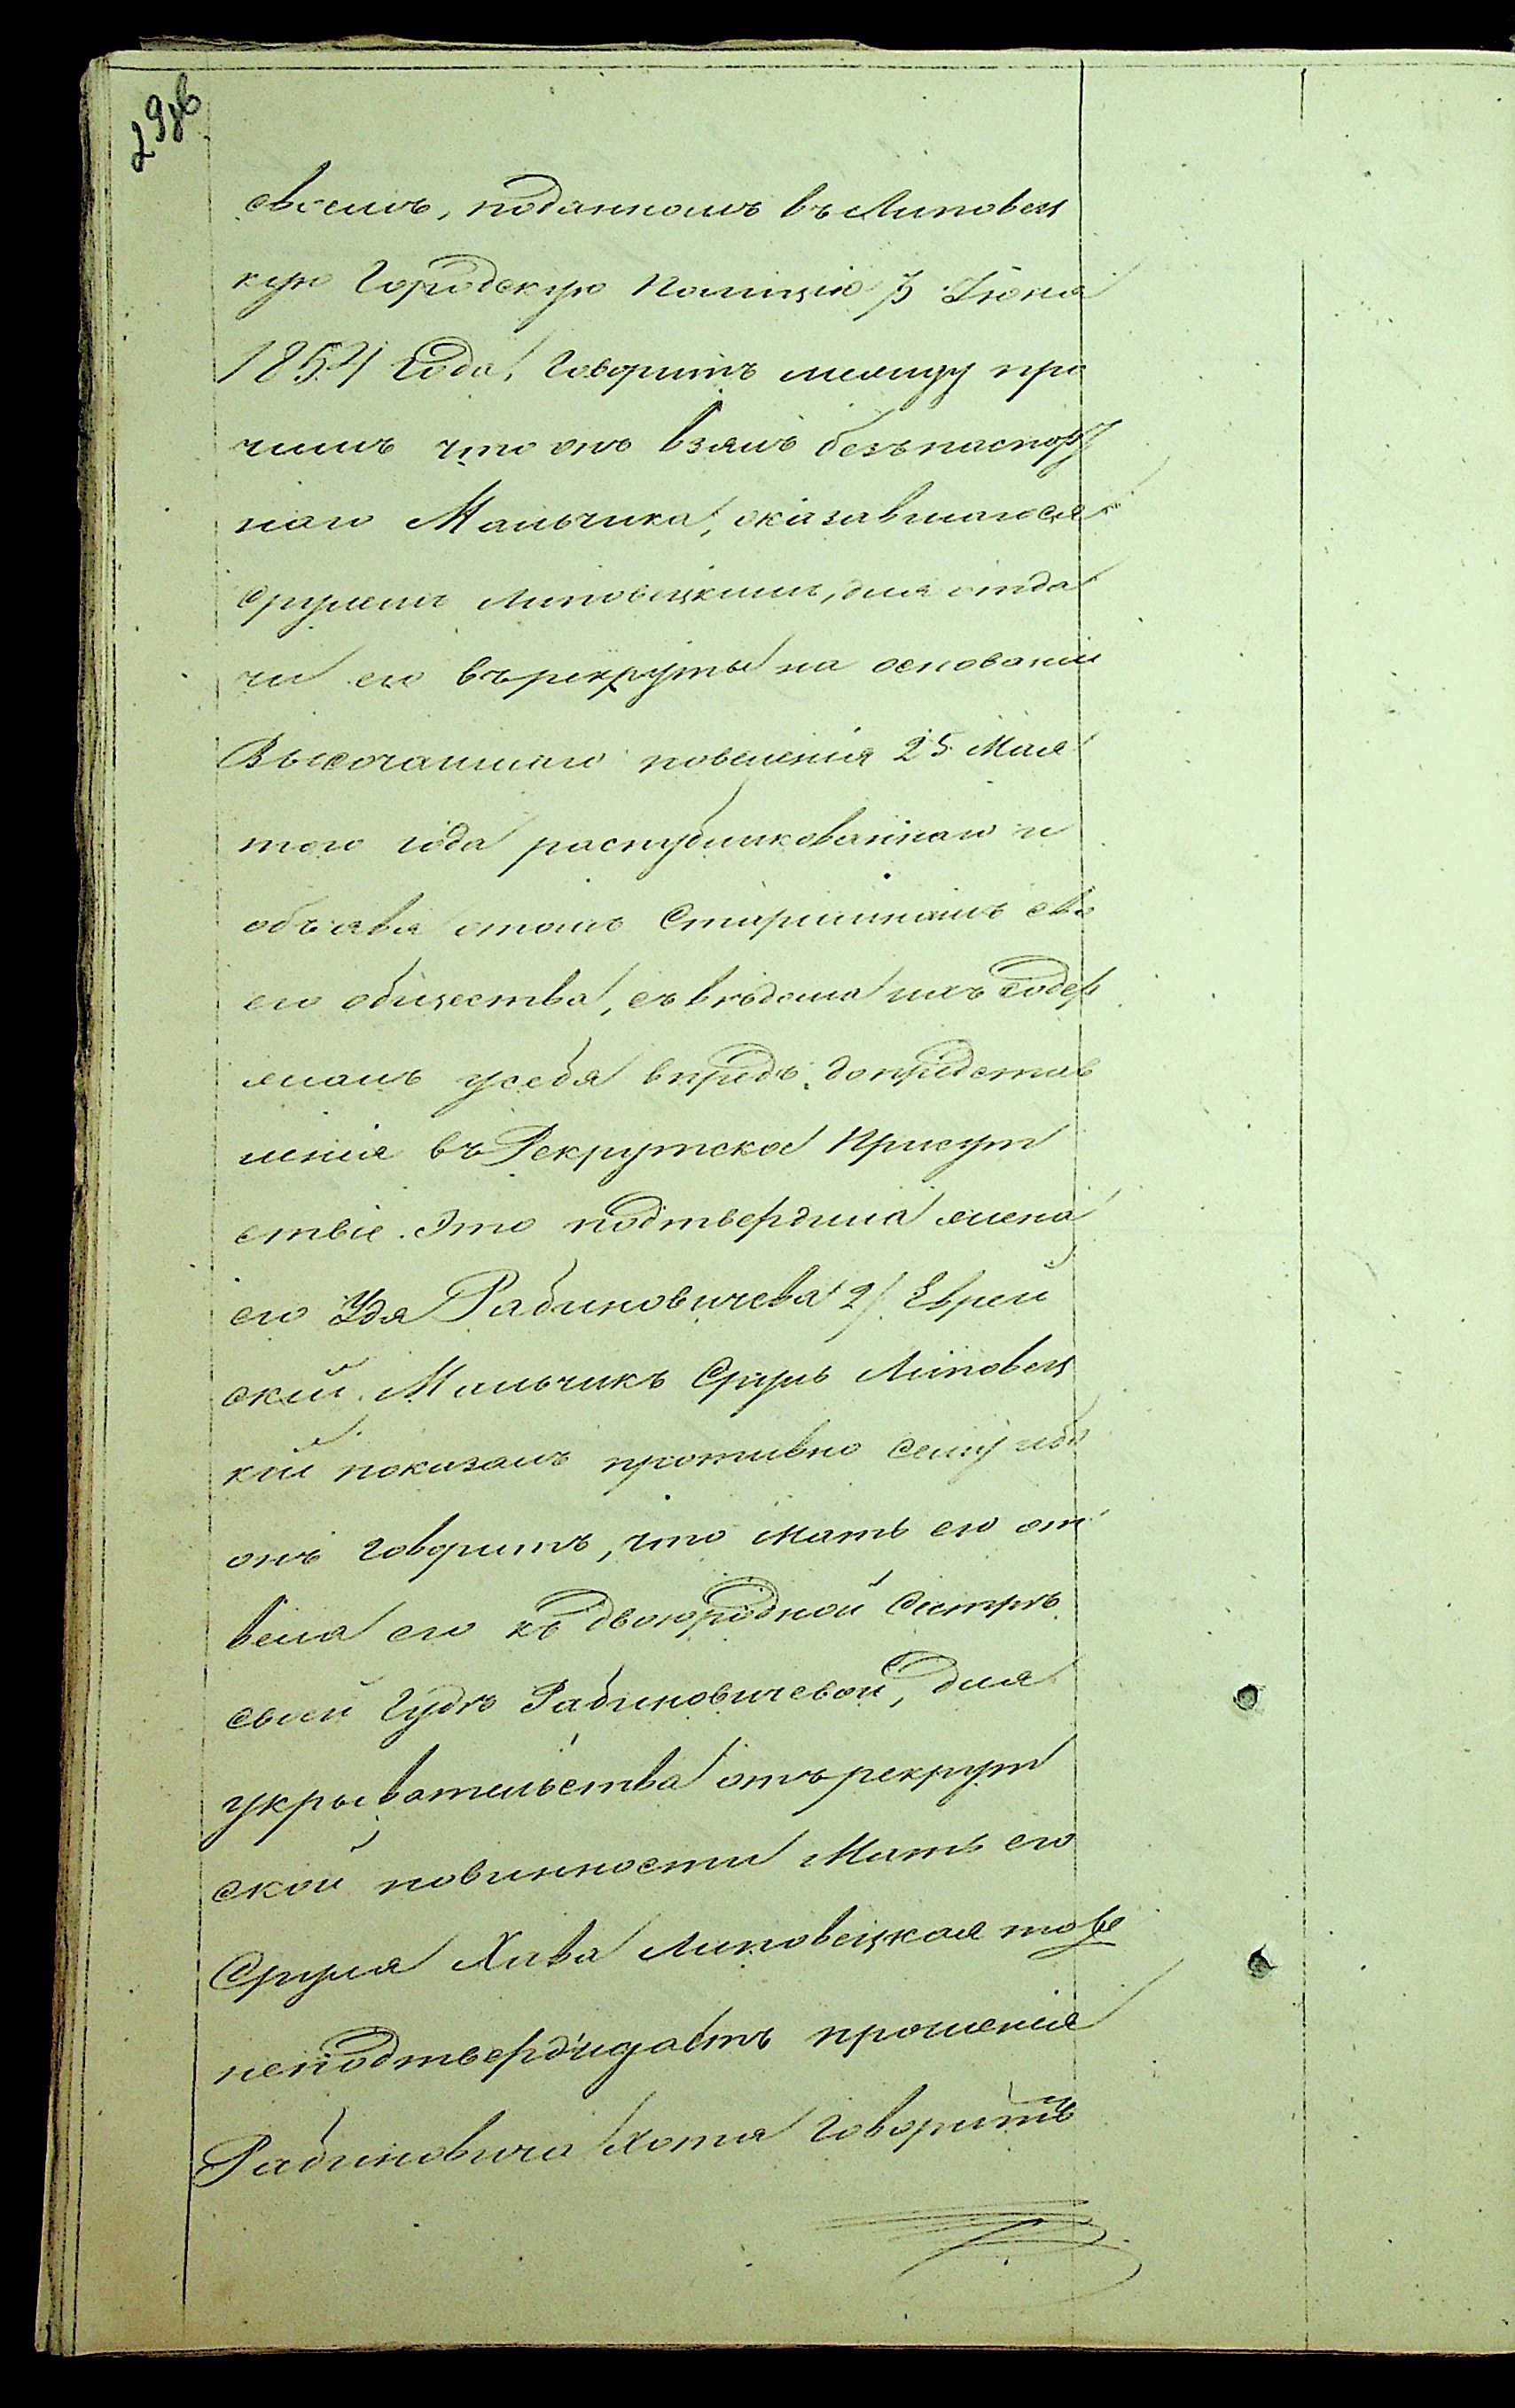 298об
своемъ, поданномъ въ Липовец
кую Городскую Полицію 3 Іюня
1854 года, говоритъ между про
чимъ что онъ взялъ безъ паспорт
наго Мальчика, оказавшагося
Срулемъ Липовецкимъ, для отда
чи его въ рекруты на основаніи
Высочайшаго повеленія 25 Мая
того года распубликованнаго и
объявя о томъ Старшинамъ сво
его общества, съ вѣдома ихъ содер
жалъ у себя впредь до представ
ленія въ Рекрутское Присут
ствіе. Это подтвердила жена
его Удя Рабиновичева 2/ Еврей
скій Мальчикъ Сруль Липовец
кій показалъ противно сему ибо
онъ говоритъ, что мать его от
вела его къ двоюродной сестрѣ
своей Гудѣ Рабиновичевой, для
укрывательства отъ рекрут
ской повинности Мать его
Сруля Хава Липовецкая тоже
неподтверждаетъ прошенія
Рабиновича хотя говоритъ